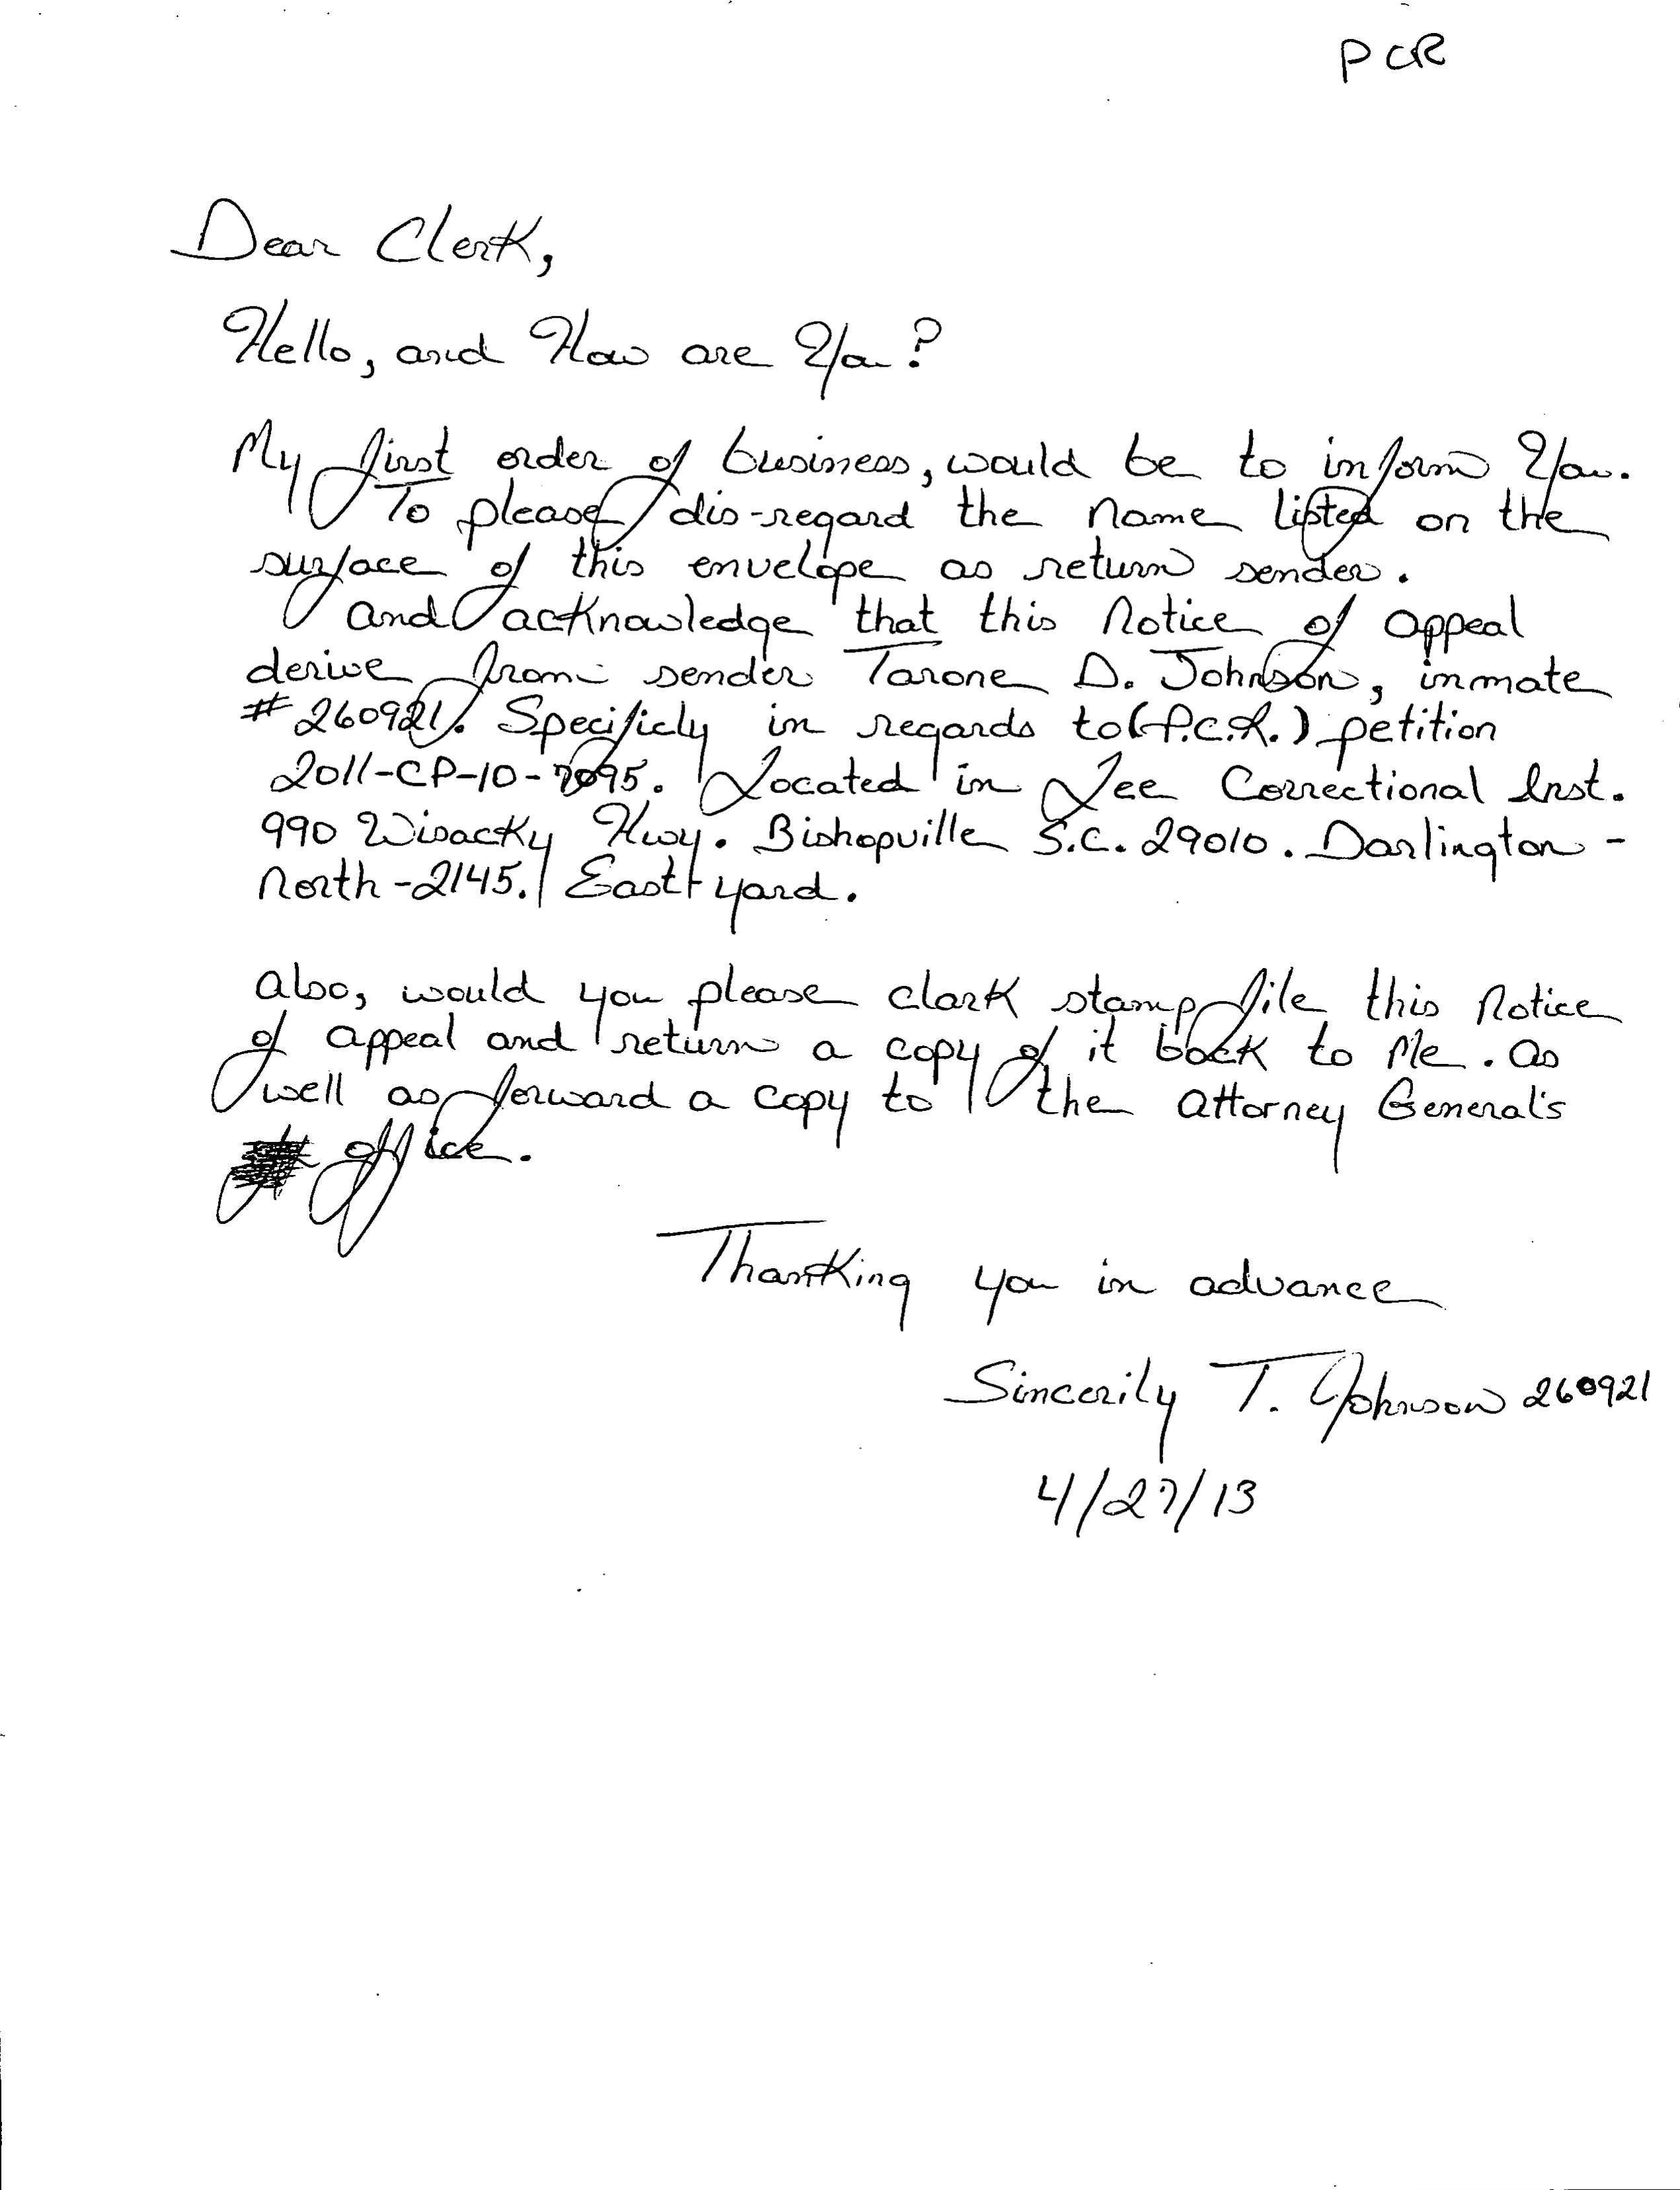 PCR
Dear Clerk,
Hello, and How are You?
My first order of business, would be to inform You.
To please dis-regard the name listed on the
surface of this envelope as return sender.
and acknowledge that this Notice of appeal
derive from sender Tarone D. Johnson, inmate
# 260921. Specificly in regards to (P.C.R.) petition
2011-CP-10-7095. Located in Lee Correctional Inst.
990 Wisacky Hwy. Bishopville S.C. 29010. Darlington -
North - 2145. East yard.
also, would you please clark stamp file this Notice
of appeal and return a copy of it back to Me. as
well as forward a copy to the attorney General's
office.
Thanking you in advance
Sincerily T. Johnson 260921
4/27/13